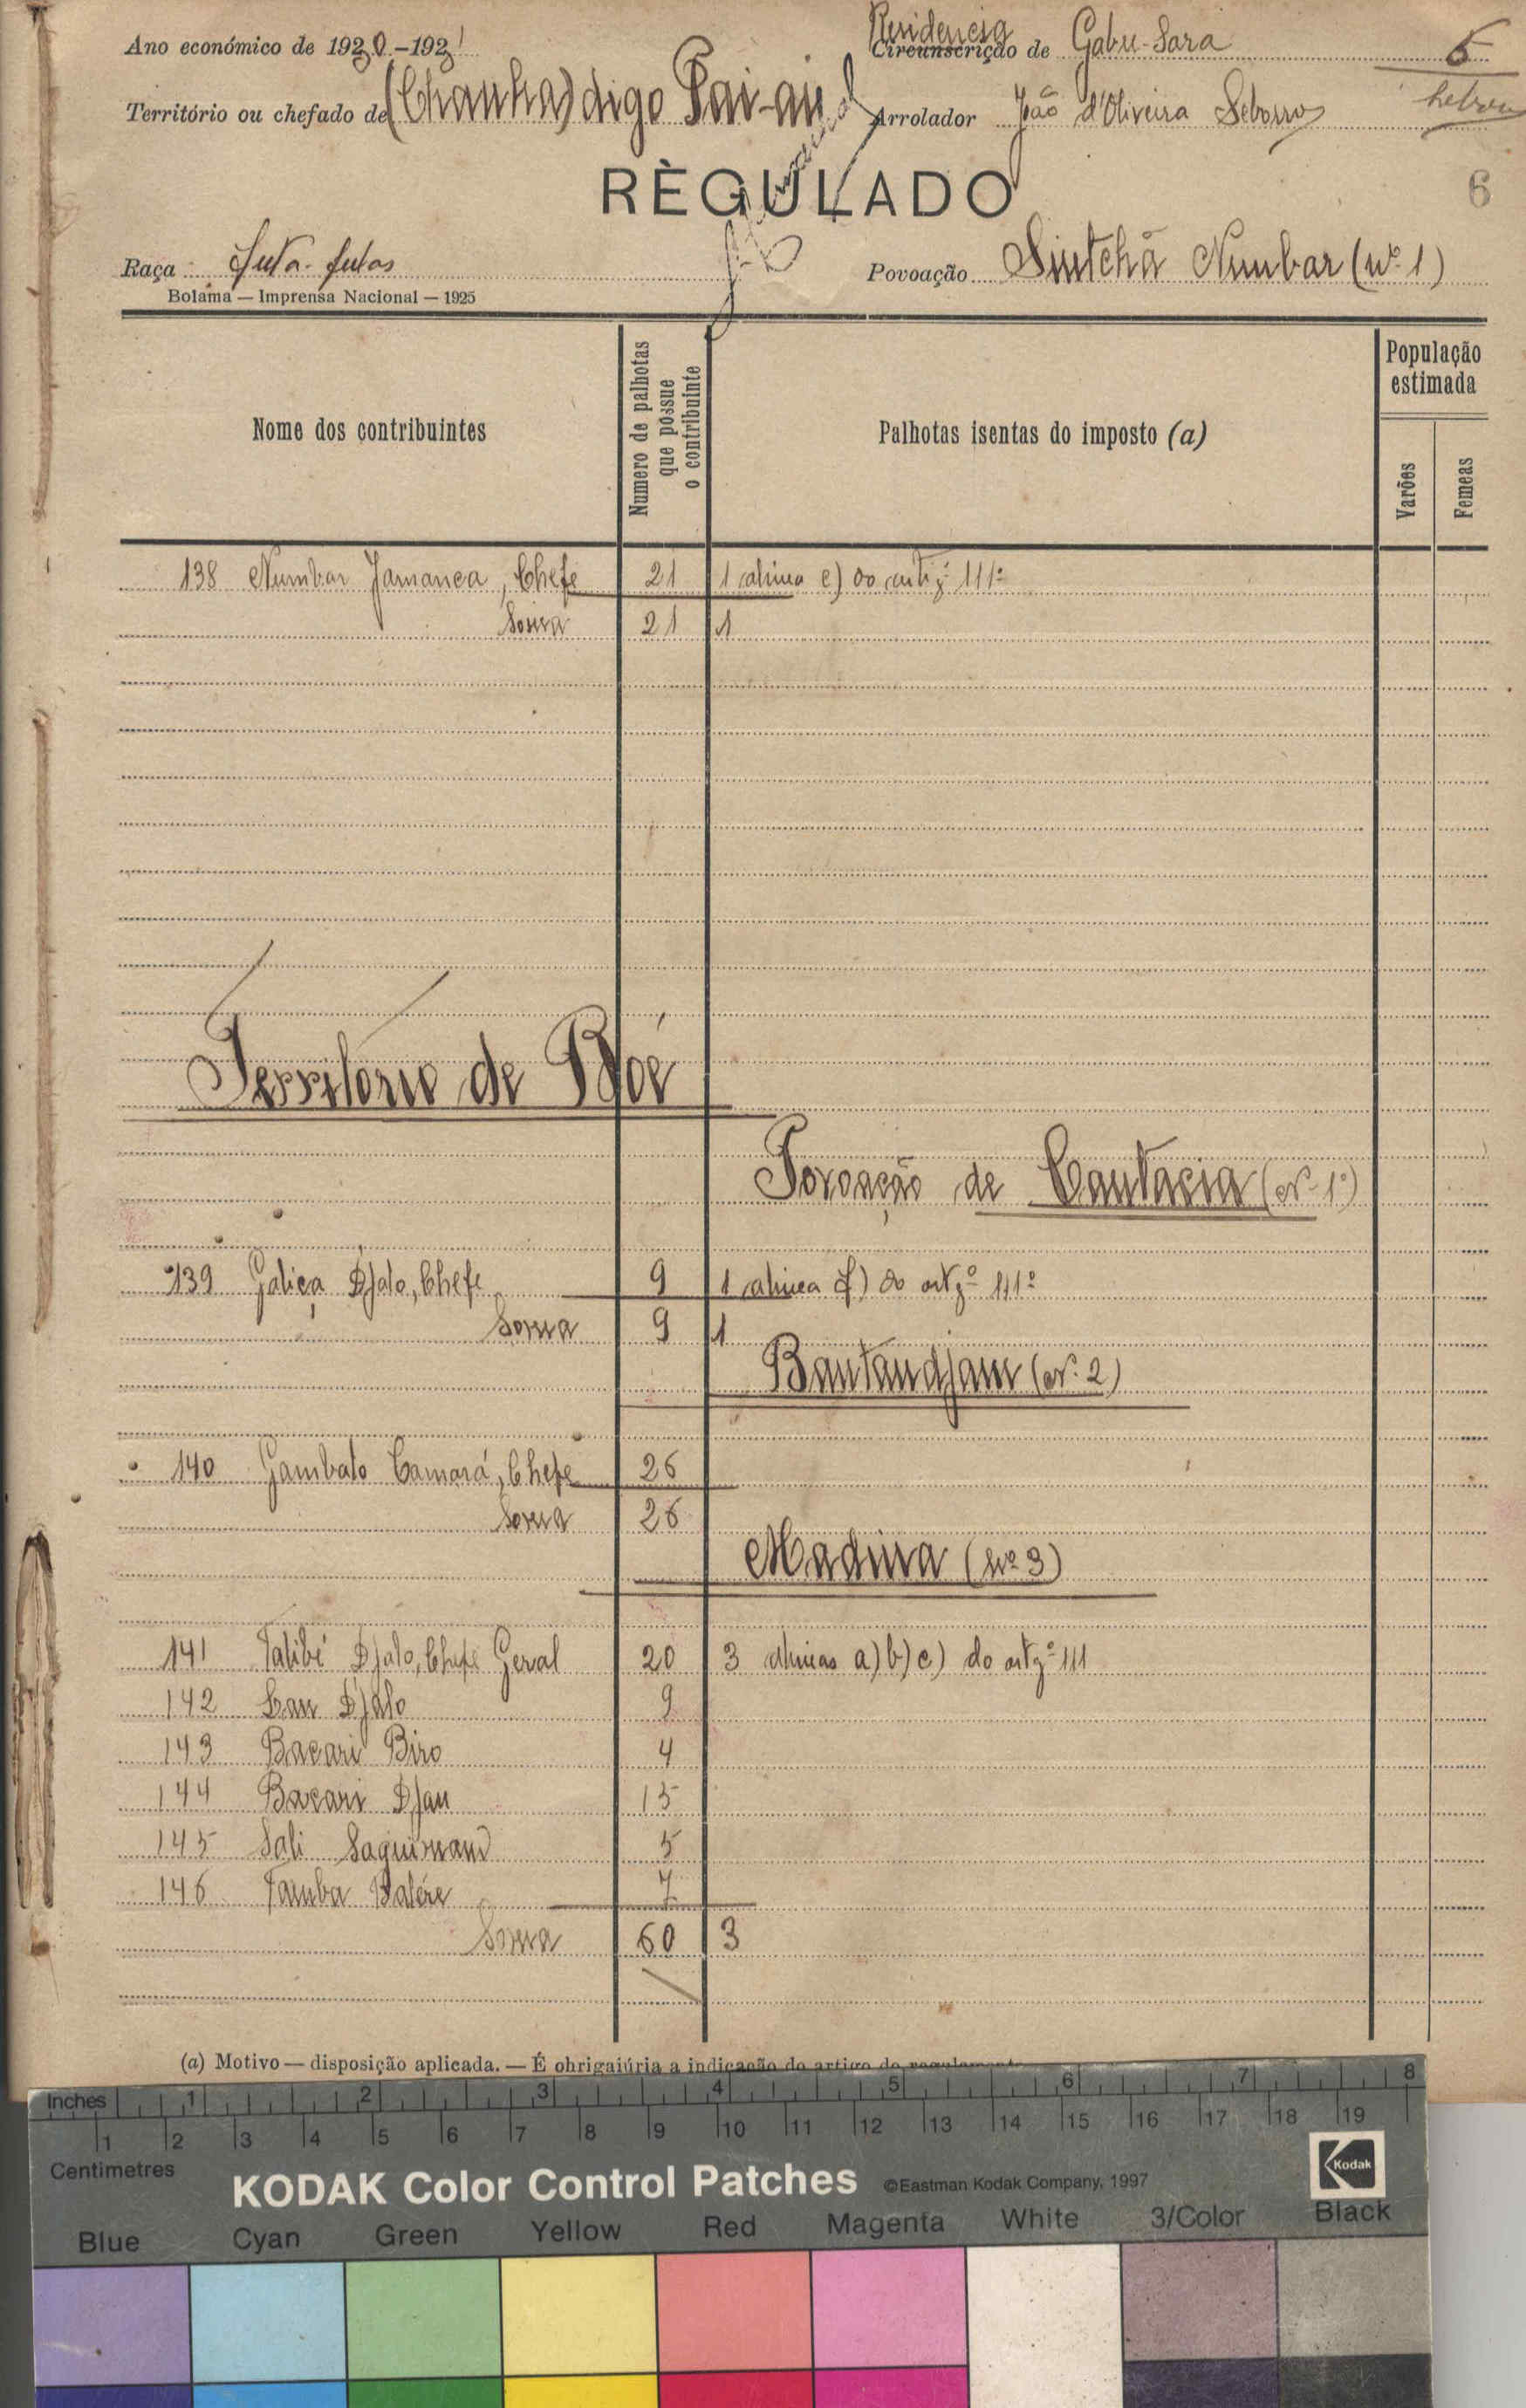 Ano económico de 1930-1931
Residencia
Circunscrição de Gabu-Sara
5
Território ou chefado de (Chanha) digo Pai-ai
Arrolador João d'Oliveira Seborro
REGULADO
6
Raça Futa-fulas
Povoação Sintchã Numbar (nº 1)
Bolama — Imprensa Nacional — 1925
Nome dos contribuintes
Numero de palhotas que possue o contribuinte
Palhotas isentas do imposto (a)
População estimada
Varões
Femeas
138 Numbar Jamanca, Chefe 21 1 alinea e) do artigº 111º
Soma 21 1
Território de Boé
Povoação de Cantacia (nº 1º)
139 Galiça Djalo, Chefe 9 1 alinea f) do artgº 111º
Soma 9 1
Bantandjam (nº 2)
140 Gambalo Camará, Chefe 26
Soma 26
Madina (nº 3)
141 Talibé Djalo, Chefe Geral 20 3 alineas a) b) c) do artgº 111
142 Djalo 9
143 Bacari Biro 4
144 Bacari Djau 15
145 Sali 5
146 Tamba 7
Soma 60 3
(a) Motivo — disposição aplicada. — É obrigatória a indicação do artigo do regulamento
Inches 1 2 3 4 5 6 7 8
1 2 3 4 5 6 7 8 9 10 11 12 13 14 15 16 17 18 19
Centimetres
KODAK Color Control Patches ©Eastman Kodak Company, 1997
Kodak
Blue Cyan Green Yellow Red Magenta White 3/Color Black